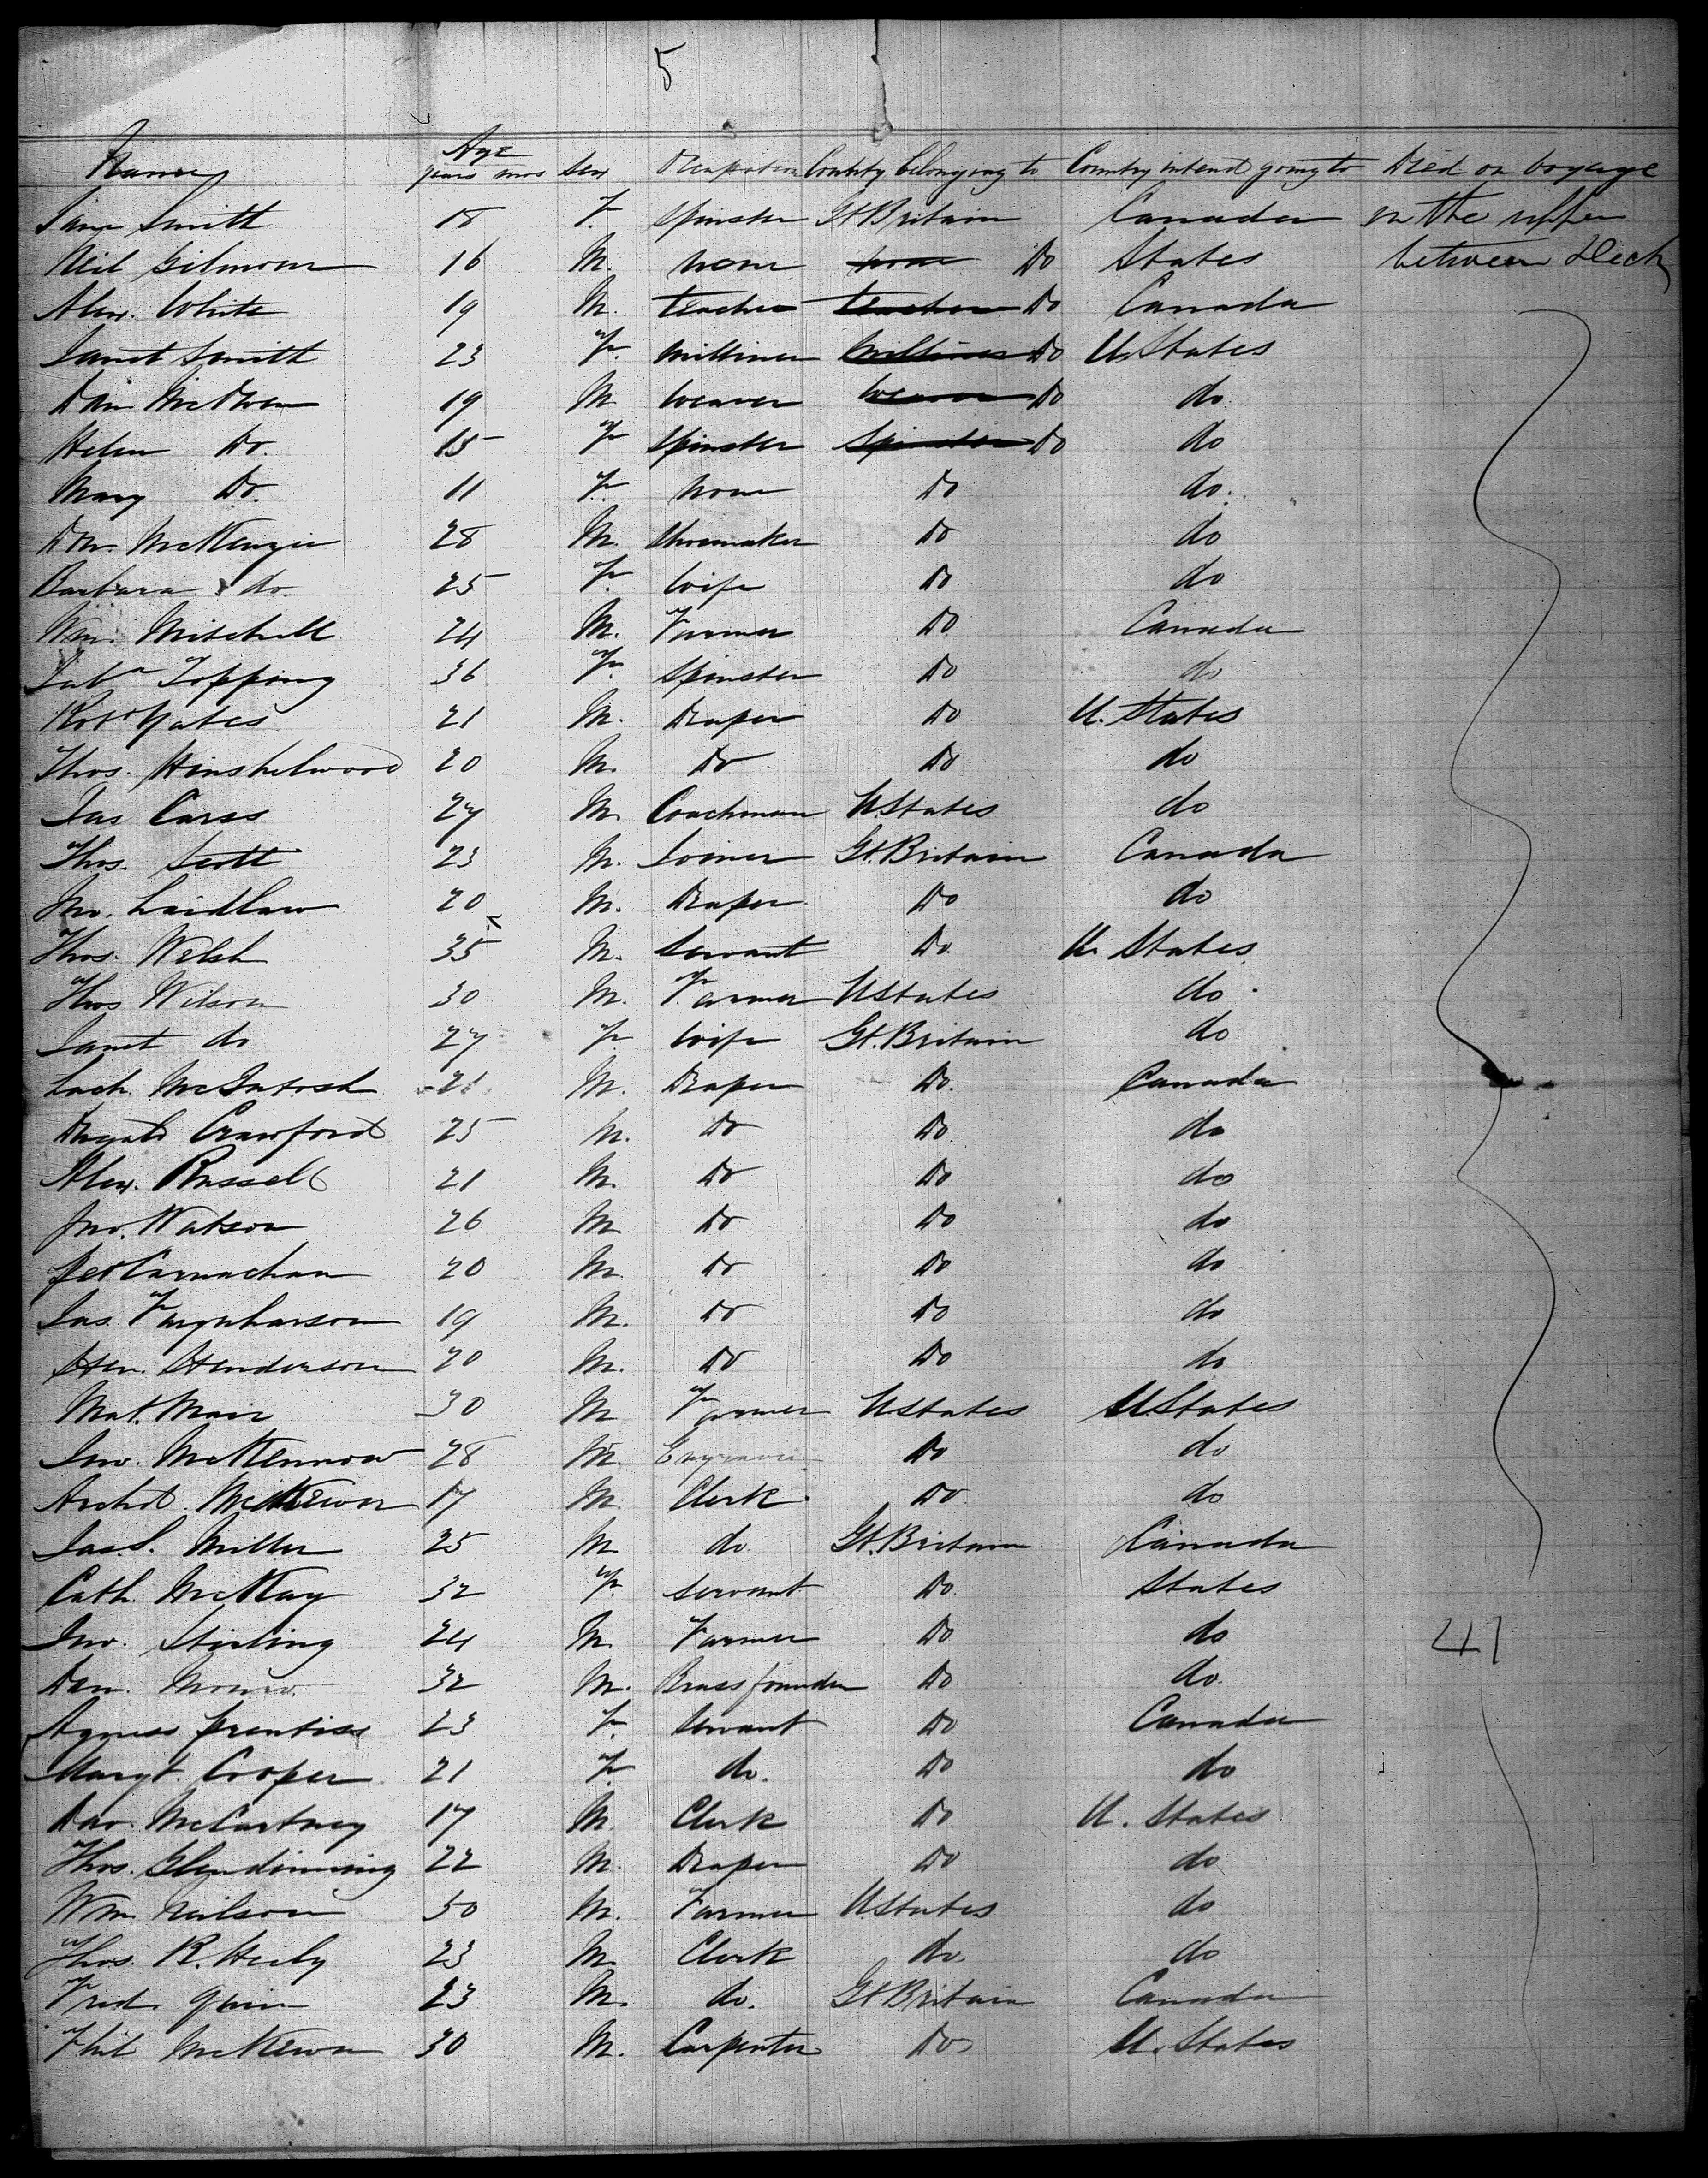 5
Name Age years mos Sex Occupation Country belonging to Country intend going to Died on voyage
Jane Smith 18 F. Spinster Gt Britain Canada on the upper
Neil Gilmour 16 M. none none Do States between Deck
Alex. White 19 M. teacher teacher Do Canada
Janet Smith 23 F. Milliner Milliner Do U. States
Dan McEwen 19 M weaver weaver Do do
Helen Do. 15 F Spinster Spinster Do do
Mary Do. 11 F. none Do do.
Dan. McKenzie 28 M. Shoemaker Do do
Barbara do. 25 F. Wife Do do
Wm. Mitchell 24 M. Farmer Do Canada
Isab a Topping 36 F. Spinster Do do
Robt Yates 21 M. Draper Do U. States
Thos. Hinshelwood 20 M. Do Do do
Jas Carss 27 M. Coachman U States do
Thos. Scott 23 M. Joiner Gt. Britain Canada
Jno. Laidlaw 20 M. Draper Do do
Thos. Welsh 35 M. Servant Do. U. States
Thos Wilson 30 M. Farmer U States do
Janet do 27 F wife Gt. Britain do
Lach. McIntosh 21 M. Draper Do. Canada
Dugald Crawford 25 M. Do Do do
Alex. Russell 21 M. Do Do do
Jno. Watson 26 M Do Do do
Pet Carnachan 20 M. Do Do do
Jas. Farquharson 19 M. Do Do do
Hen. Henderson 20 M. Do Do do
Mat. Mair 30 M Farmer U States U States
Jno. 28 M. Engraver Do do
Archd. McKewn 17 M Clerk Do do
Jas. S. Miller 25 M do. Gt. Britain Canada
Cath. McKay 32 F. Servant Do. States
Jno. Stirling 24 M. Farmer Do do 41
Dan. Monro. 32 M. Brassfounder Do do.
Agness Prentiss 23 F. Servant Do Canada
Margt. Cooper 21 F do. Do do
Dav. McCartney 17 M Clerk Do U. States
Thos. Glendinning 22 M. Draper Do do
Wm Neilson 50 M. Farmer U States do
Thos. R. Hely 23 M. Clerk do. do
Fred. 23 M. do. Gt Britain Canada
Phil McKewn 30 M. Carpenter Do U. States